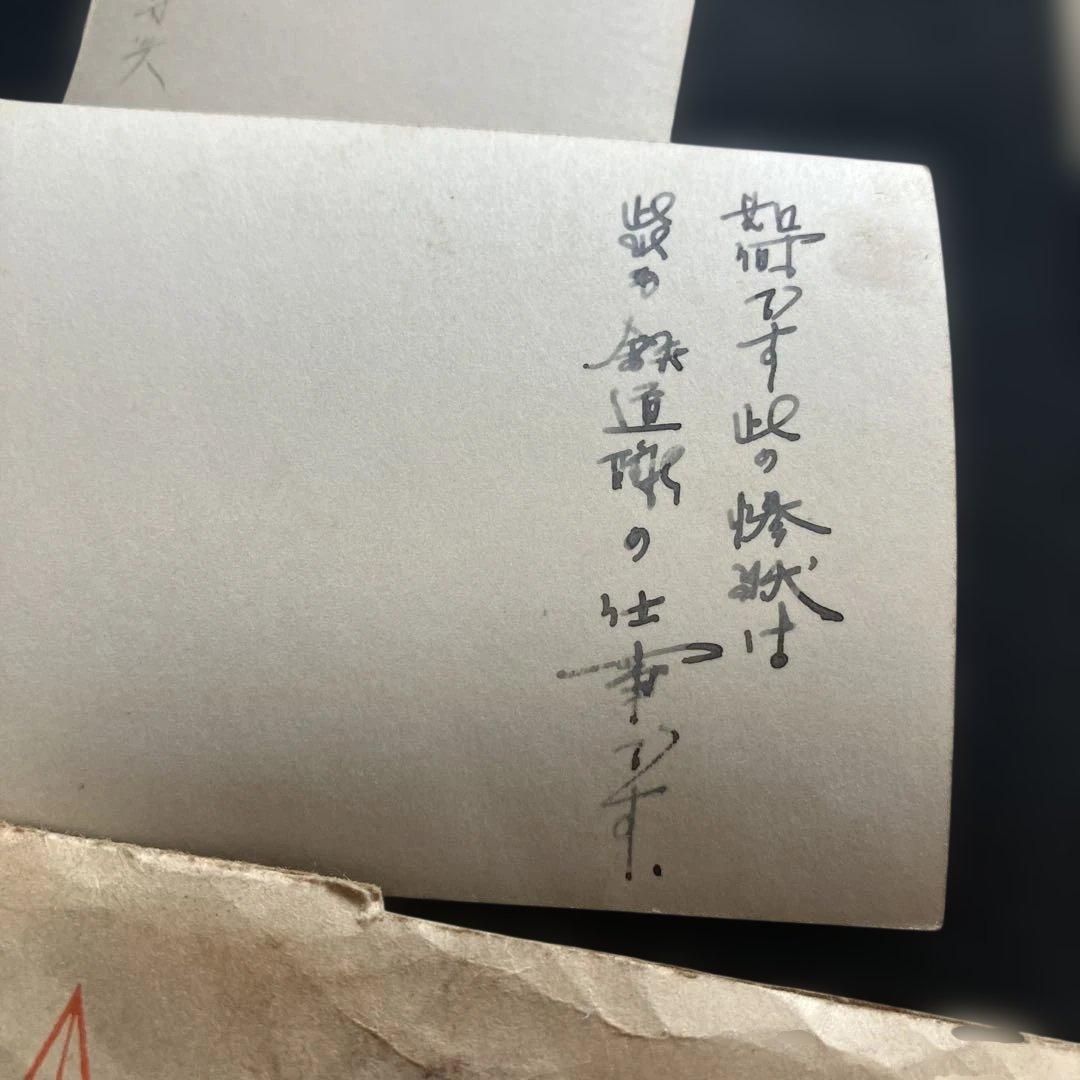 如何です此の惨状は
鉄道隊の仕事です.